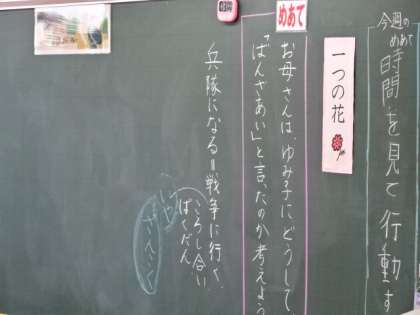 今週の
めあて
時間を見て行動す
一つの花
めあて
お母さんは、ゆみ子にどうして
「ばんざあい」と言ったのか考えよう
兵隊になる＝戦争に行く。
ころし合い
ばくだん
いや
ざんこく